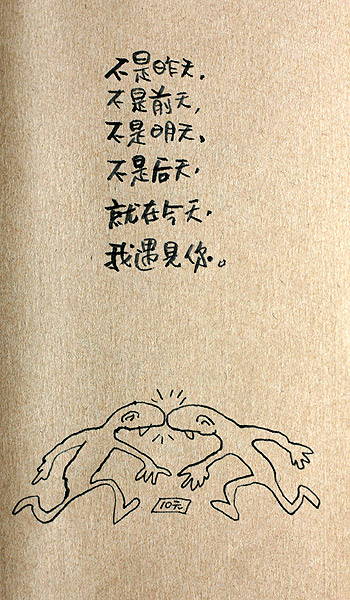 不是昨天,
不是前天,
不是明天、
不是后天,
就在今天,
我遇見你。
10元